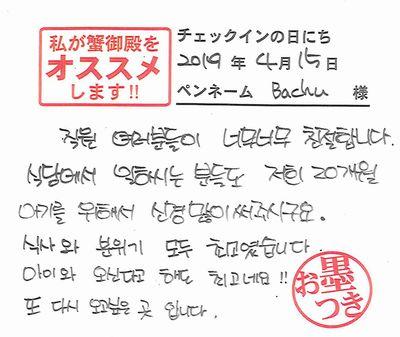 私が蟹御殿を
オススメ
します!!
チェックインの日にち
2019 年 4月 15 日
ペンネーム Bachu 様
직원 여러분들이 너무너무 친절합니다.
식당에서 일하시는 분들도 저희 20개월
아기를 위해서 신경많이써주시구요.
식사와 분위기 모두 최고였습니다.
아이와 오신다고 해도 최고네요!!
또 다시 오고싶은 곳 입니다.
お墨つき